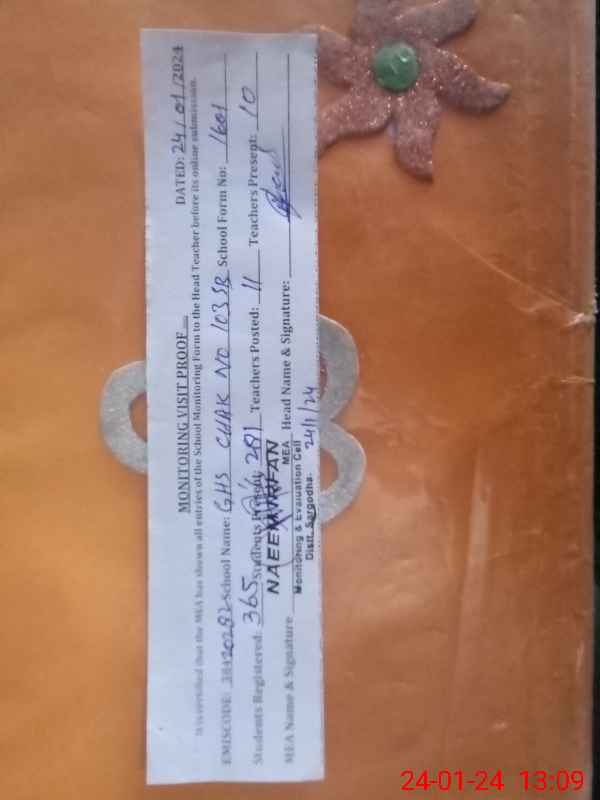 MONITORING VISIT PROOF
DATED: 24/01/2024
It is certified that the MEA has shown all entries of the School Monitoring Form to the Head Teacher before its online submission.
EMISCODE: 38420282 School Name: GHS CHAK NO 103 SB School Form No: 1601
Students Registered: 365 Students Present: 281 Teachers Posted: 11 Teachers Present: 10
MEA Name & Signature Head Name & Signature:
NAEEM IRFAN
MEA
Monitoring & Evaluation Cell
Distt. Sargodha.
24/1/24
24-01-24 13:09